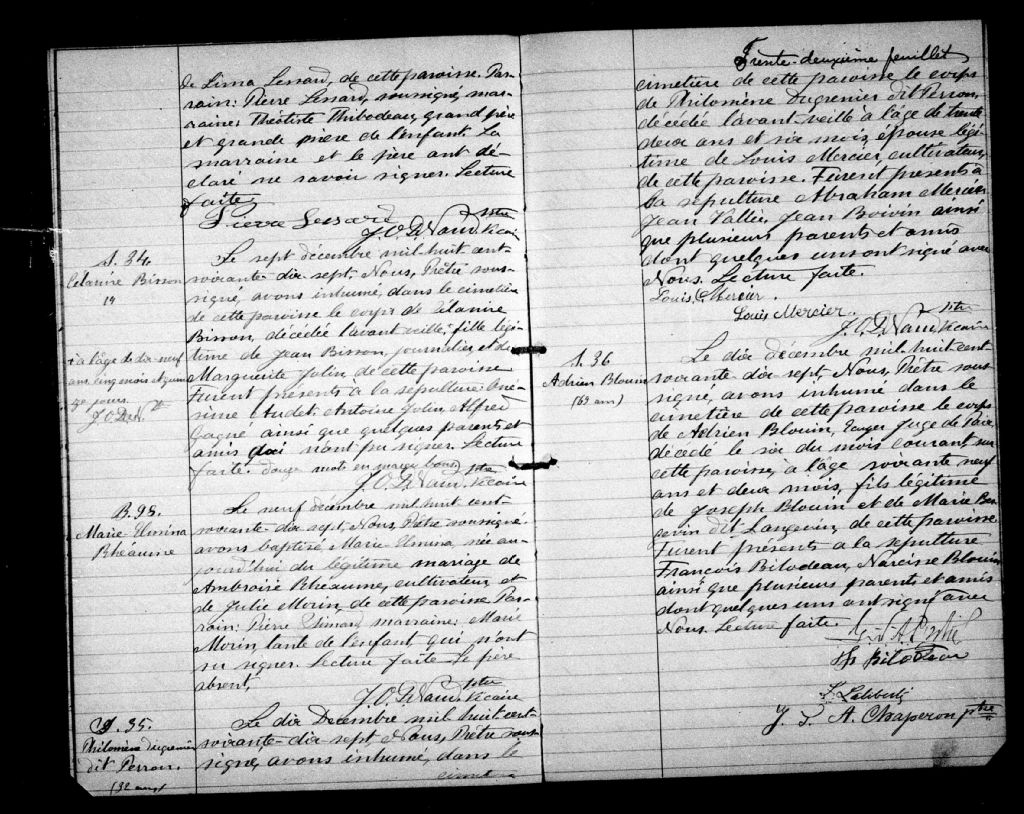 de Lima Lessard, de cette paroisse. Par-
rain: Pierre Lessard, soussigné, mar-
raine: Théotiste Thibodeau, grand père
et grande mère de l'enfant. La
marraine et le père ont dé-
claré ne savoir signer. Lecture
faite.
Pierre Lessard
Ptre
Vicaire
S. 34.
Célanire Bisson
19
+ à l'âge de dix-neuf
ans cinq mois et quin
ze jours.
Le sept décembre mil-huit cent-
soixante-dix-sept, Nous, Prêtre sous-
signé, avons inhumé, dans le cimetière
de cette paroisse le corps de Célanire
Bisson, décédée l'avant veille, + fille légi-
time de Jean Bisson, journalier, et de
Marguerite Jolin de cette paroisse
Furent présents à la sépulture Oné-
sime Audet, Antoine Jolin, Alfred
Gagné ainsi que quelques parents et
amis qui n'ont pu signer. Lecture
faite. douze mots en marge bons.
Ptre
Vicaire
B. 98.
Marie-Elmina
Rhéaume
Le neuf décembre mil-huit cent-
soixante-dix-sept, Nous, Prêtre soussigné,
avons baptisé Marie-Elmina, née au-
jourd'hui du légitime mariage de
Ambroise Rhéaume, cultivateur, et
de Julie Morin, de cette paroisse. Par-
rain: Pierre marraine: Marie
Morin, tante de l'enfant, qui n'ont
su signer. Lecture faite. Le père
absent.
Ptre
Vicaire
S. 35.
Philomène Dugrenier
dit Perron.
(32 ans)
Le dix Décembre mil huit cent-
soixante-dix-sept, Nous, Prêtre sous-
signé, avons inhumé, dans le
Trente-deuxième feuillet
cimetière de cette paroisse le corps
de Philomène Dugrenier dit Perron,
décédée l'avant veille à l'âge de trente
deux ans et six mois, épouse légi-
time de Louis Mercier, cultivateur,
de cette paroisse. Furent présents à
la sépulture Abraham Mercier
Jean Vallée, Jean Boivin ainsi
que plusieurs parents et amis
dont quelques uns ont signé avec
Nous. Lecture faite.
Louis Mercier.
Louis Mercier.
Ptre
Vicaire
S. 36
Adrien Blouin
(69 ans)
Le dix décembre mil huit cent
soixante-dix-sept, Nous, Prêtre sous-
signé, avons inhumé dans le
cimetière de cette paroisse le corps
de Adrien Blouin, Ecuyer Juge de Paix
décédé le six du mois courant sur
cette paroisse, à l'âge soixante neuf
ans et deux mois, fils légitime
de Joseph Blouin et de Marie Ber
gevin dit Langevin, de cette paroisse.
Furent présents à la sépulture
François Bilodeau, Narcisse Blouin
ainsi que plusieurs parents et amis
dont quelques uns ont signé avec
Nous. Lecture faite.
Bilodeau
Laliberté
J. T. A. Chaperon ptre